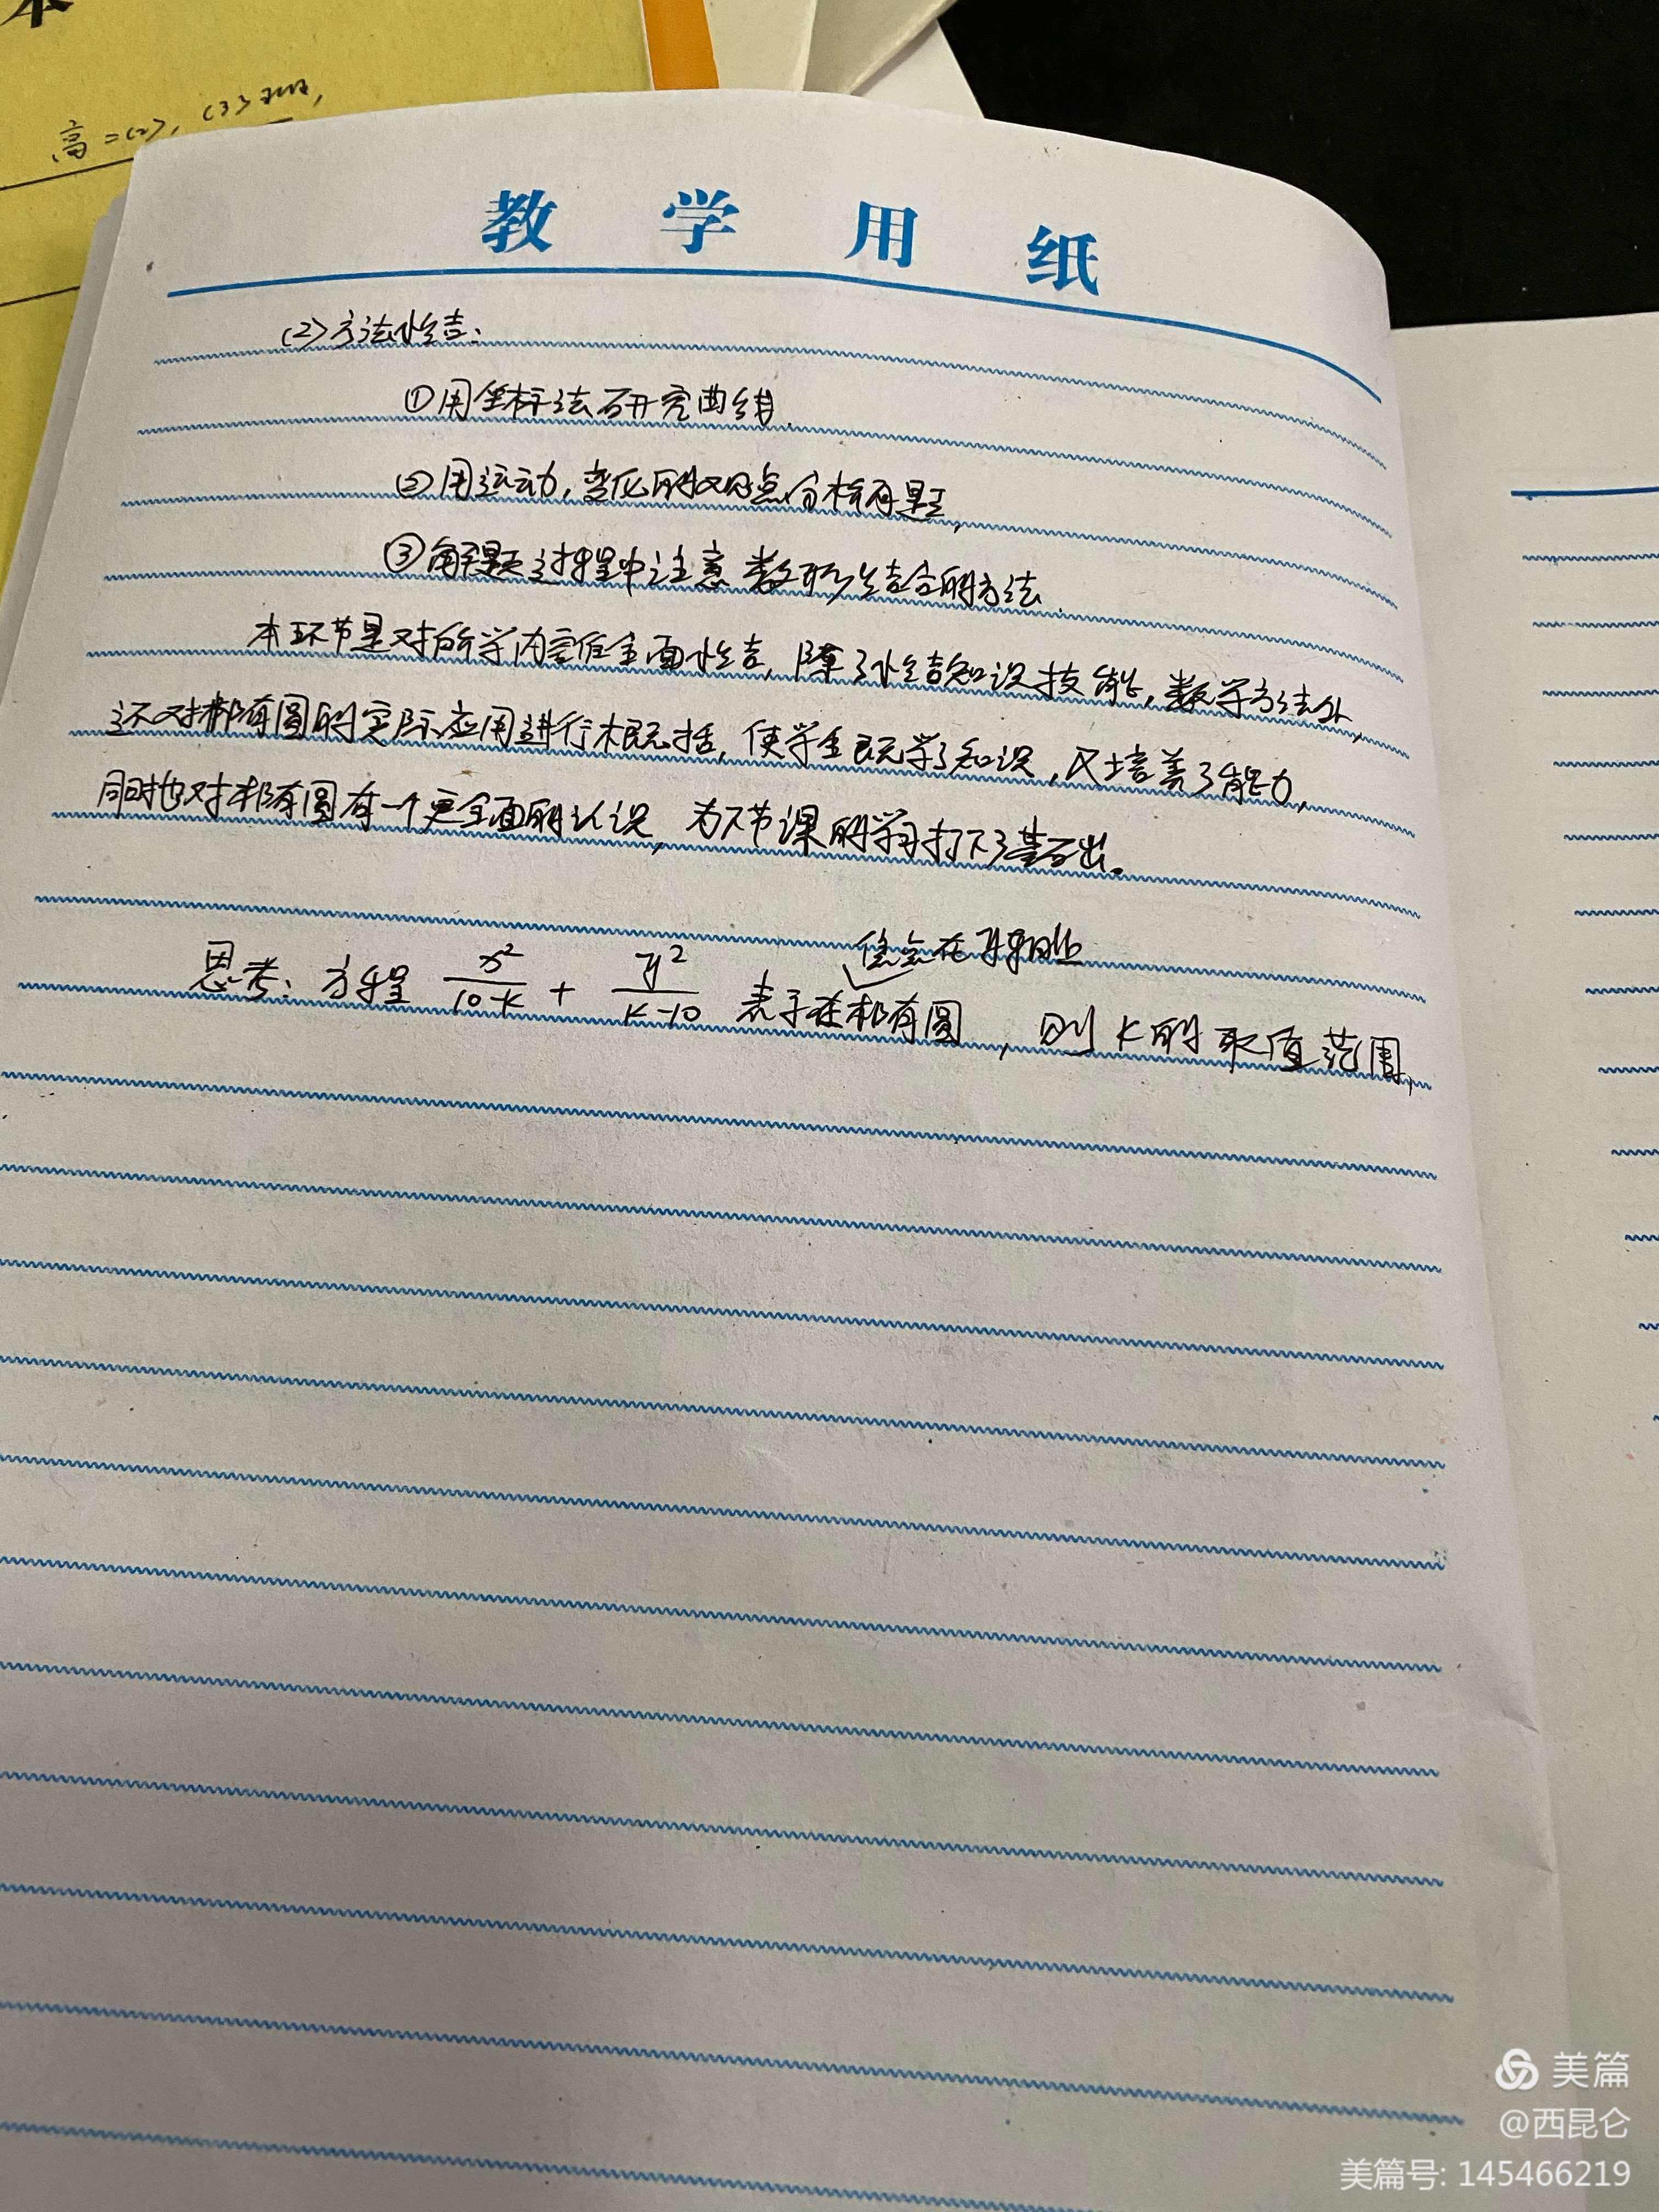 本
高=(2), (3)
教学用纸
(2)方法小结:
①用坐标法研究曲线.
②用运动,变化的观点分析问题,
③解题过程中注意数形结合的方法.
本环节是对所学内容作全面小结,除了小结知识技能,数学方法外,
还对椭圆的实际应用进行概括,使学生既学了知识,又培养了能力,
同时也对椭圆有一个更全面的认识,为下节课的学习打下了基础。
焦点在y轴上
思考:方程 x²/(10-k) + y²/(k-10) 表示椭圆,则k的取值范围,
美篇
@西昆仑
美篇号: 145466219